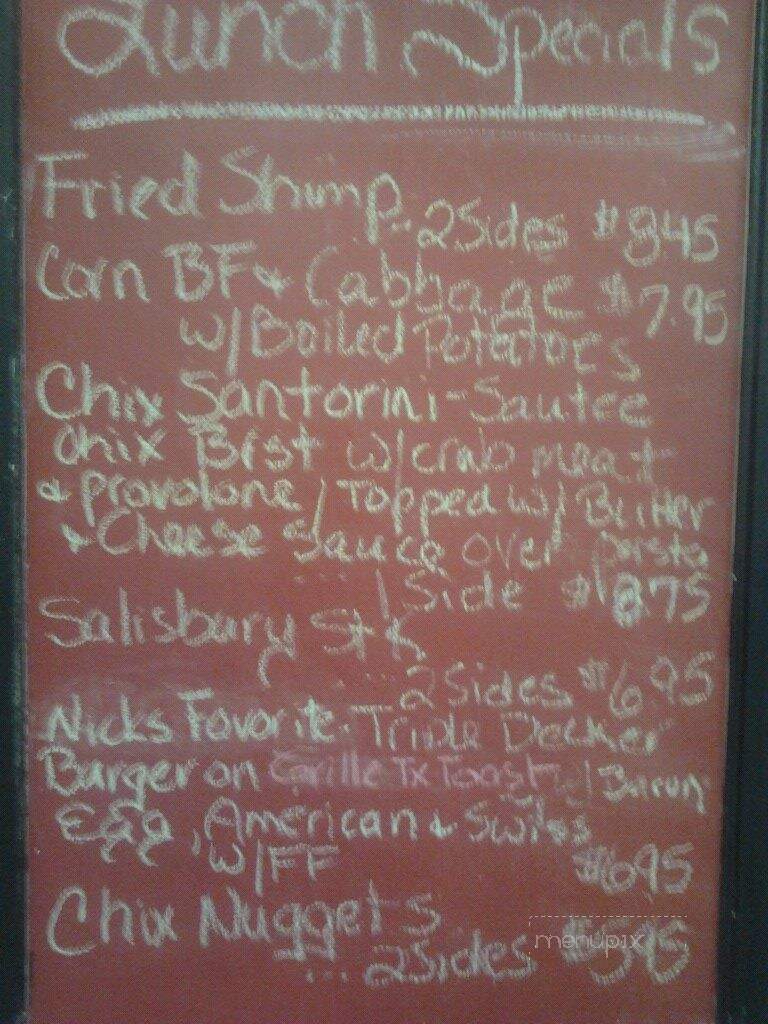 Lunch Specials
Fried Shrimp
..2Sides $8.45
Corn BF & Cabbage $7.95
w/Boiled Potatoes
Chix Santorini-Sautee
chix Brst w/crab meat
& provolone/Topped w/ Butter
& Cheese Sauce over pasta
... 1 Side $8.75
Salisbury Stk
....2Sides $6.95
Nicks Favorite. Triple Decker
Burger on Grille Tx Toast w/ Bacon
Egg, American & Swiss
w/FF $6.95
Chix Nuggets
...2Sides $5.95
menupix